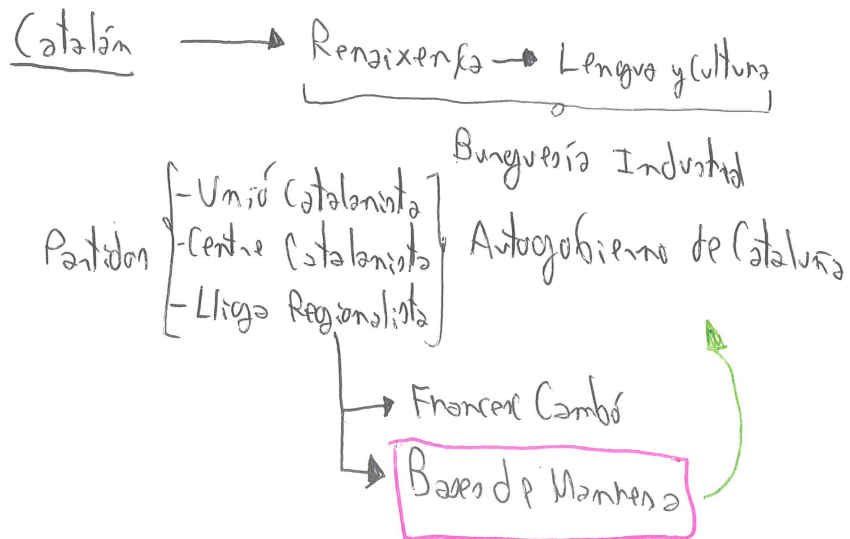 Catalán → Renaixença → Lengua y Cultura
Burguesía Industrial
Partidos
- Unió Catalanista
- Centre Catalanista
- Lliga Regionalista
Autogobierno de Cataluña
Francesc Cambó
Bases de Manresa